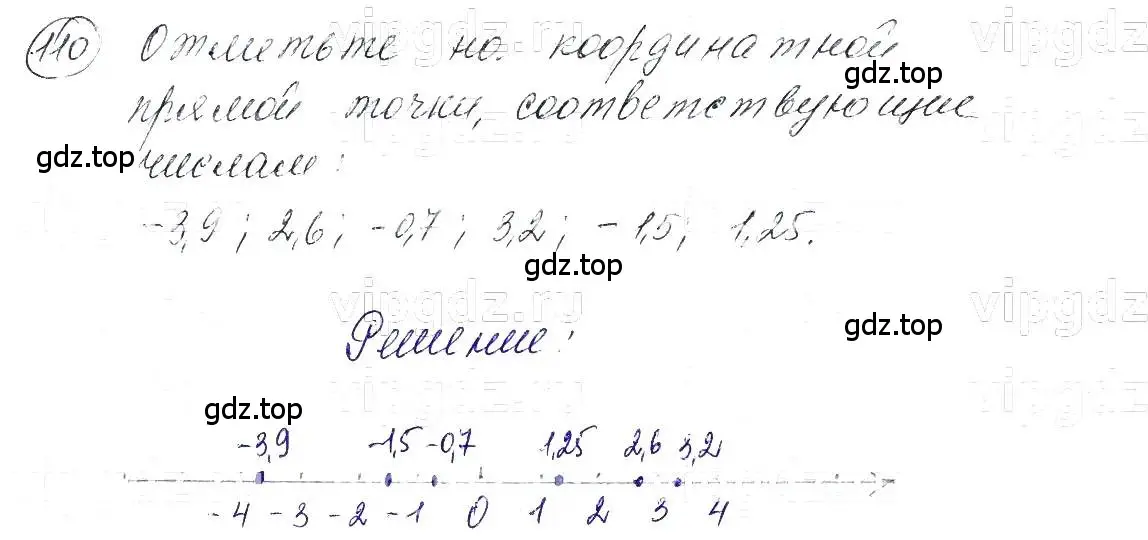 110 Отметьте на координатной
прямой точки, соответствующие
числам:
-3,9; 2,6; -0,7; 3,2; -1,5; 1,25.
Решение:
-3,9 -1,5 -0,7 1,25 2,6 3,2
-4 -3 -2 -1 0 1 2 3 4
vipgdz.ru
vipgdz.ru
gdz.top
gdz.top
vipgdz.ru
vipgdz.ru
gdz.top
vipgdz.ru
vipgdz.ru
gdz.top
gdz.top